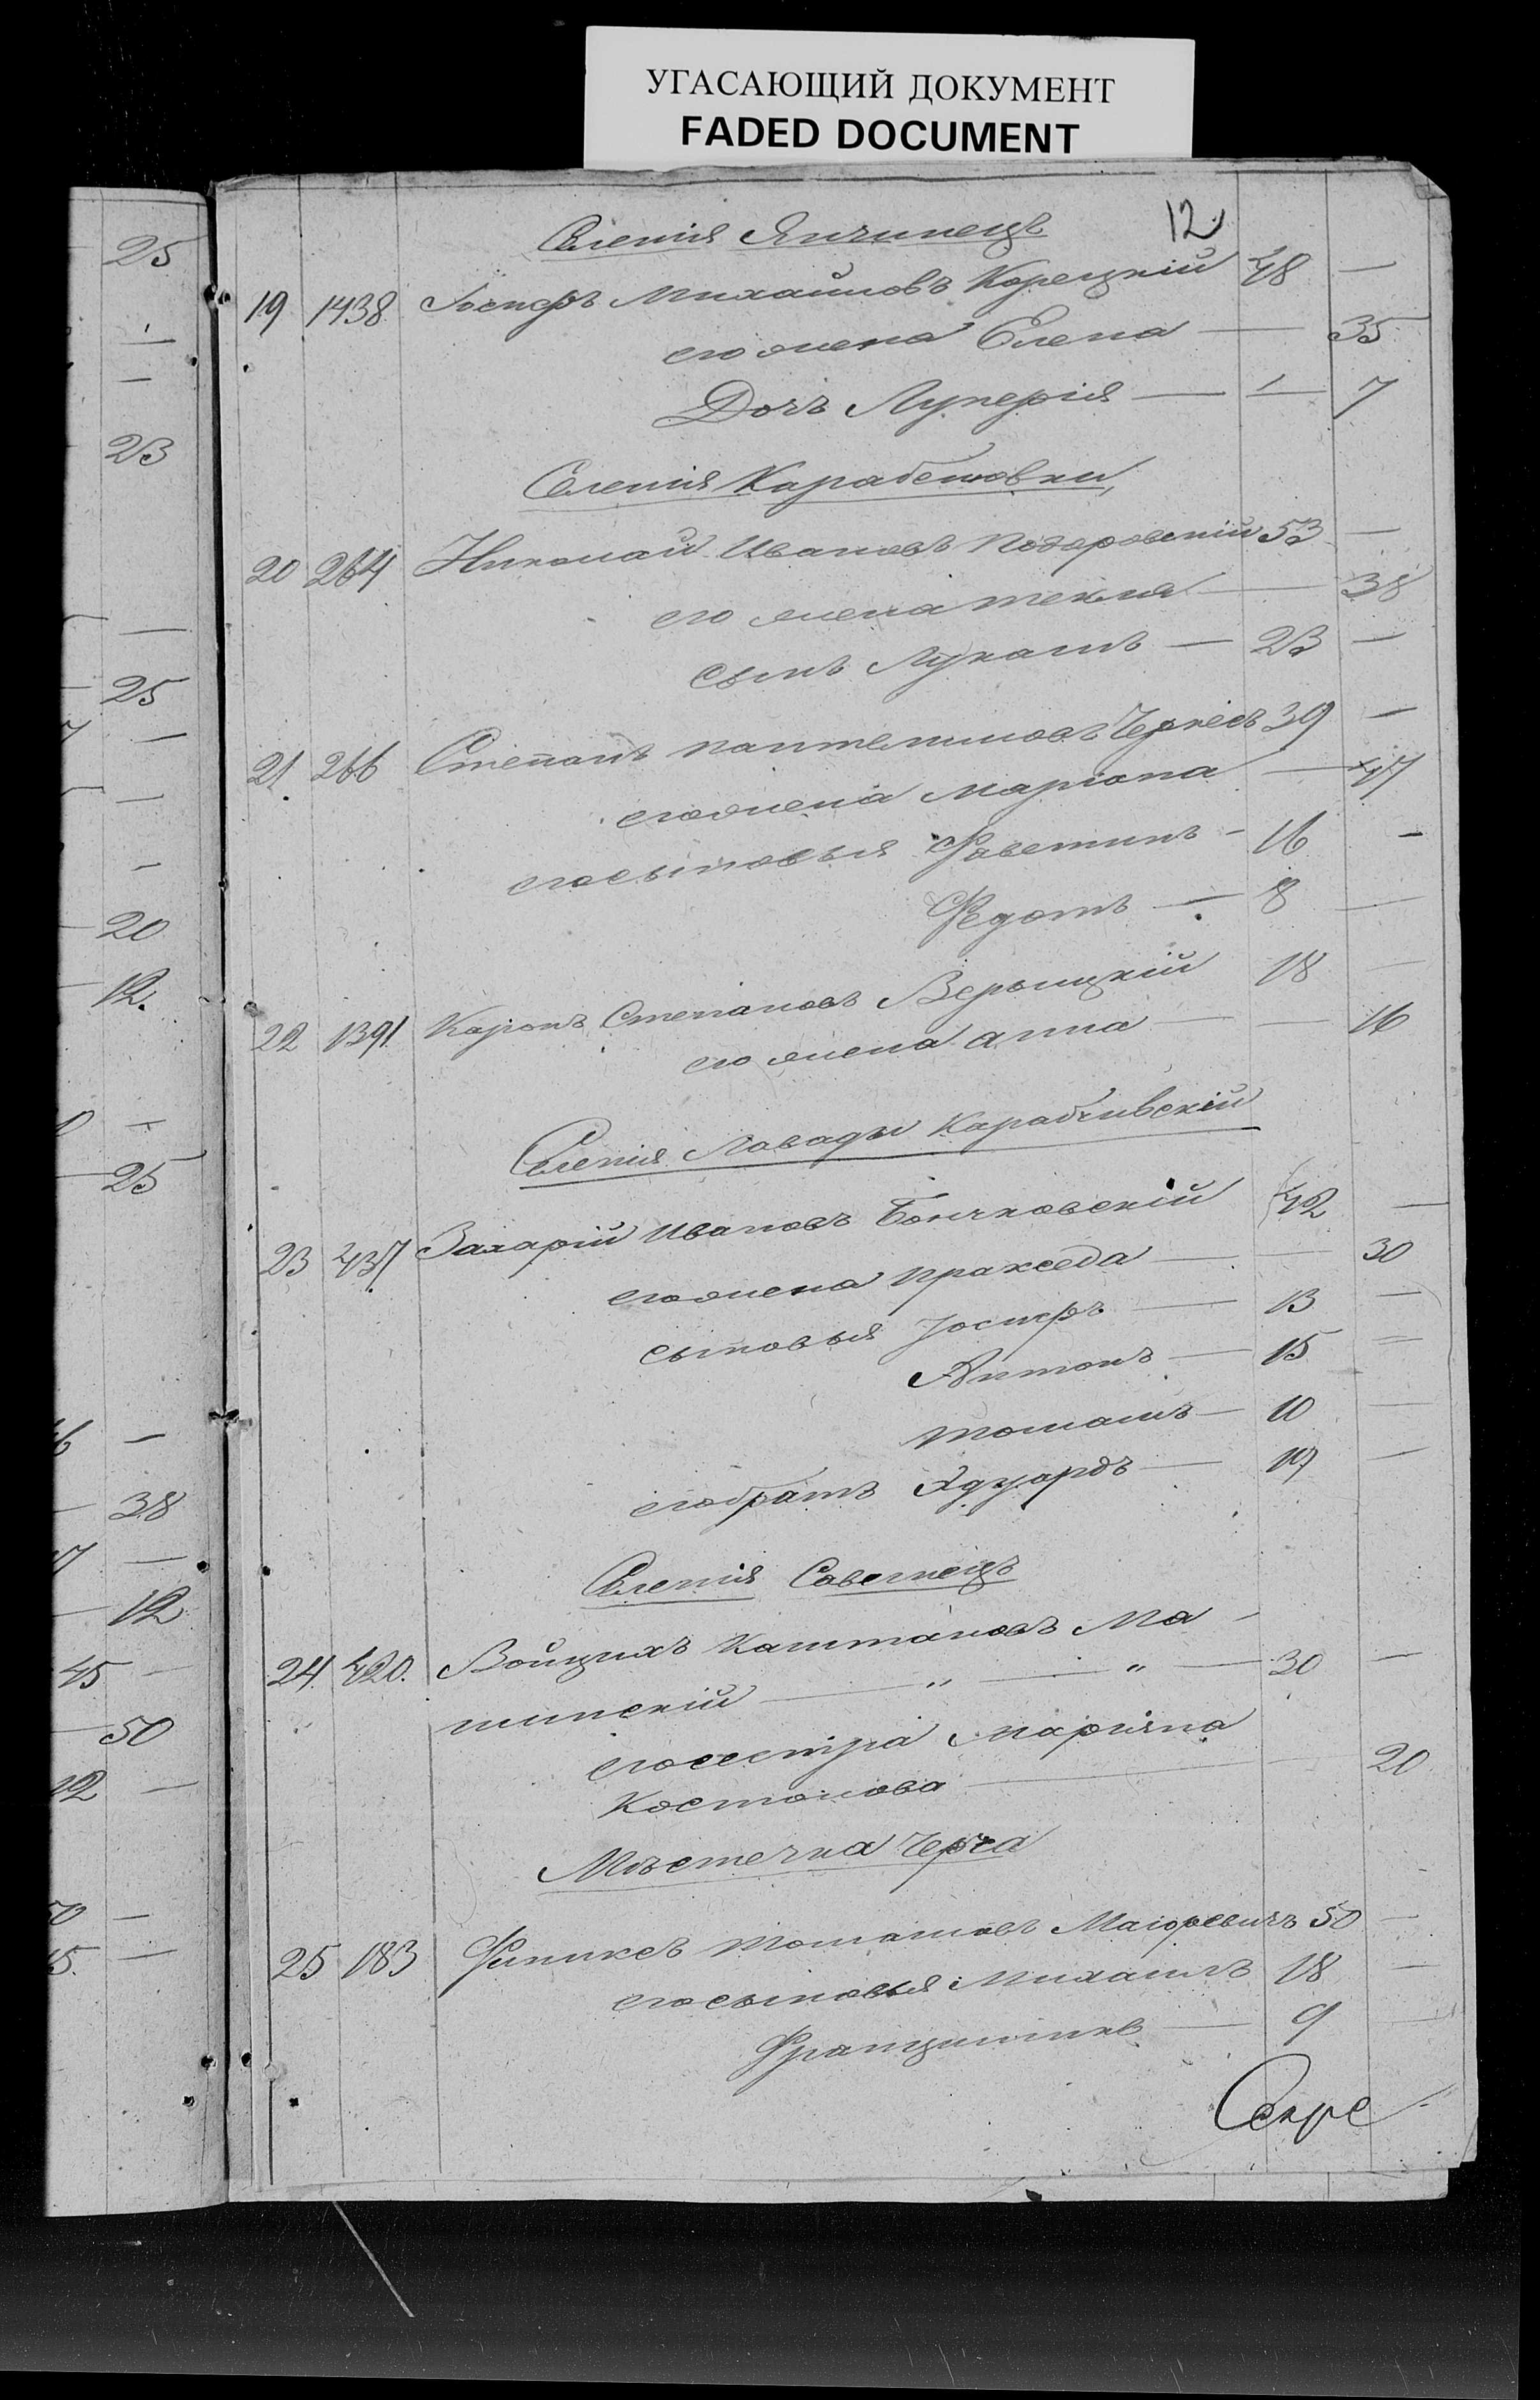 УГАСАЮЩИЙ ДОКУМЕНТ
FADED DOCUMENT
12
Селенія Янчинецъ
19 1438 Іосифъ Михайловъ Корецкій 48 —
его жена Елена — 35
Дочь Лукерія — 7
Селенія Карабетовки,
20 264 Николай Ивановъ Подоровскій 53 —
его жена Текля — 38
сынъ Лукашъ — 23 —
21 266 Степанъ Пантелимовъ Черкесъ 39 —
его жена Маріона — 47
его сыновья Фаветинъ — 16 —
Федотъ — 8 —
22 1391 Каронъ Степановъ Верыицкій 18 —
его жена Анна — — 16
Селенія Ловады Карабчивскій
23 437 Захарій Ивановъ Бончковскій 42 —
его жена Праксeда — — 30
сыновья Іосифъ — 13 —
Антонъ — 15 —
Томашъ — 10 —
его братъ Эдуардъ — 19 —
Селенія Совернецъ
24 420. Войцихъ Каштановъ Ма-
шинскій — " — " — 30 —
его сестра Марiяна
Костонова — — 20
Мѣстечка Черча
25 183 Феликсъ Томашовъ Маіоревичъ 50 —
его сыновья Михаилъ 18 —
Францишикъ — 9 —
Секре
25
—
—
23
—
25
—
—
—
20
12.
—
25
—
38
—
12
45 —
50
12 —
50 —
5. —